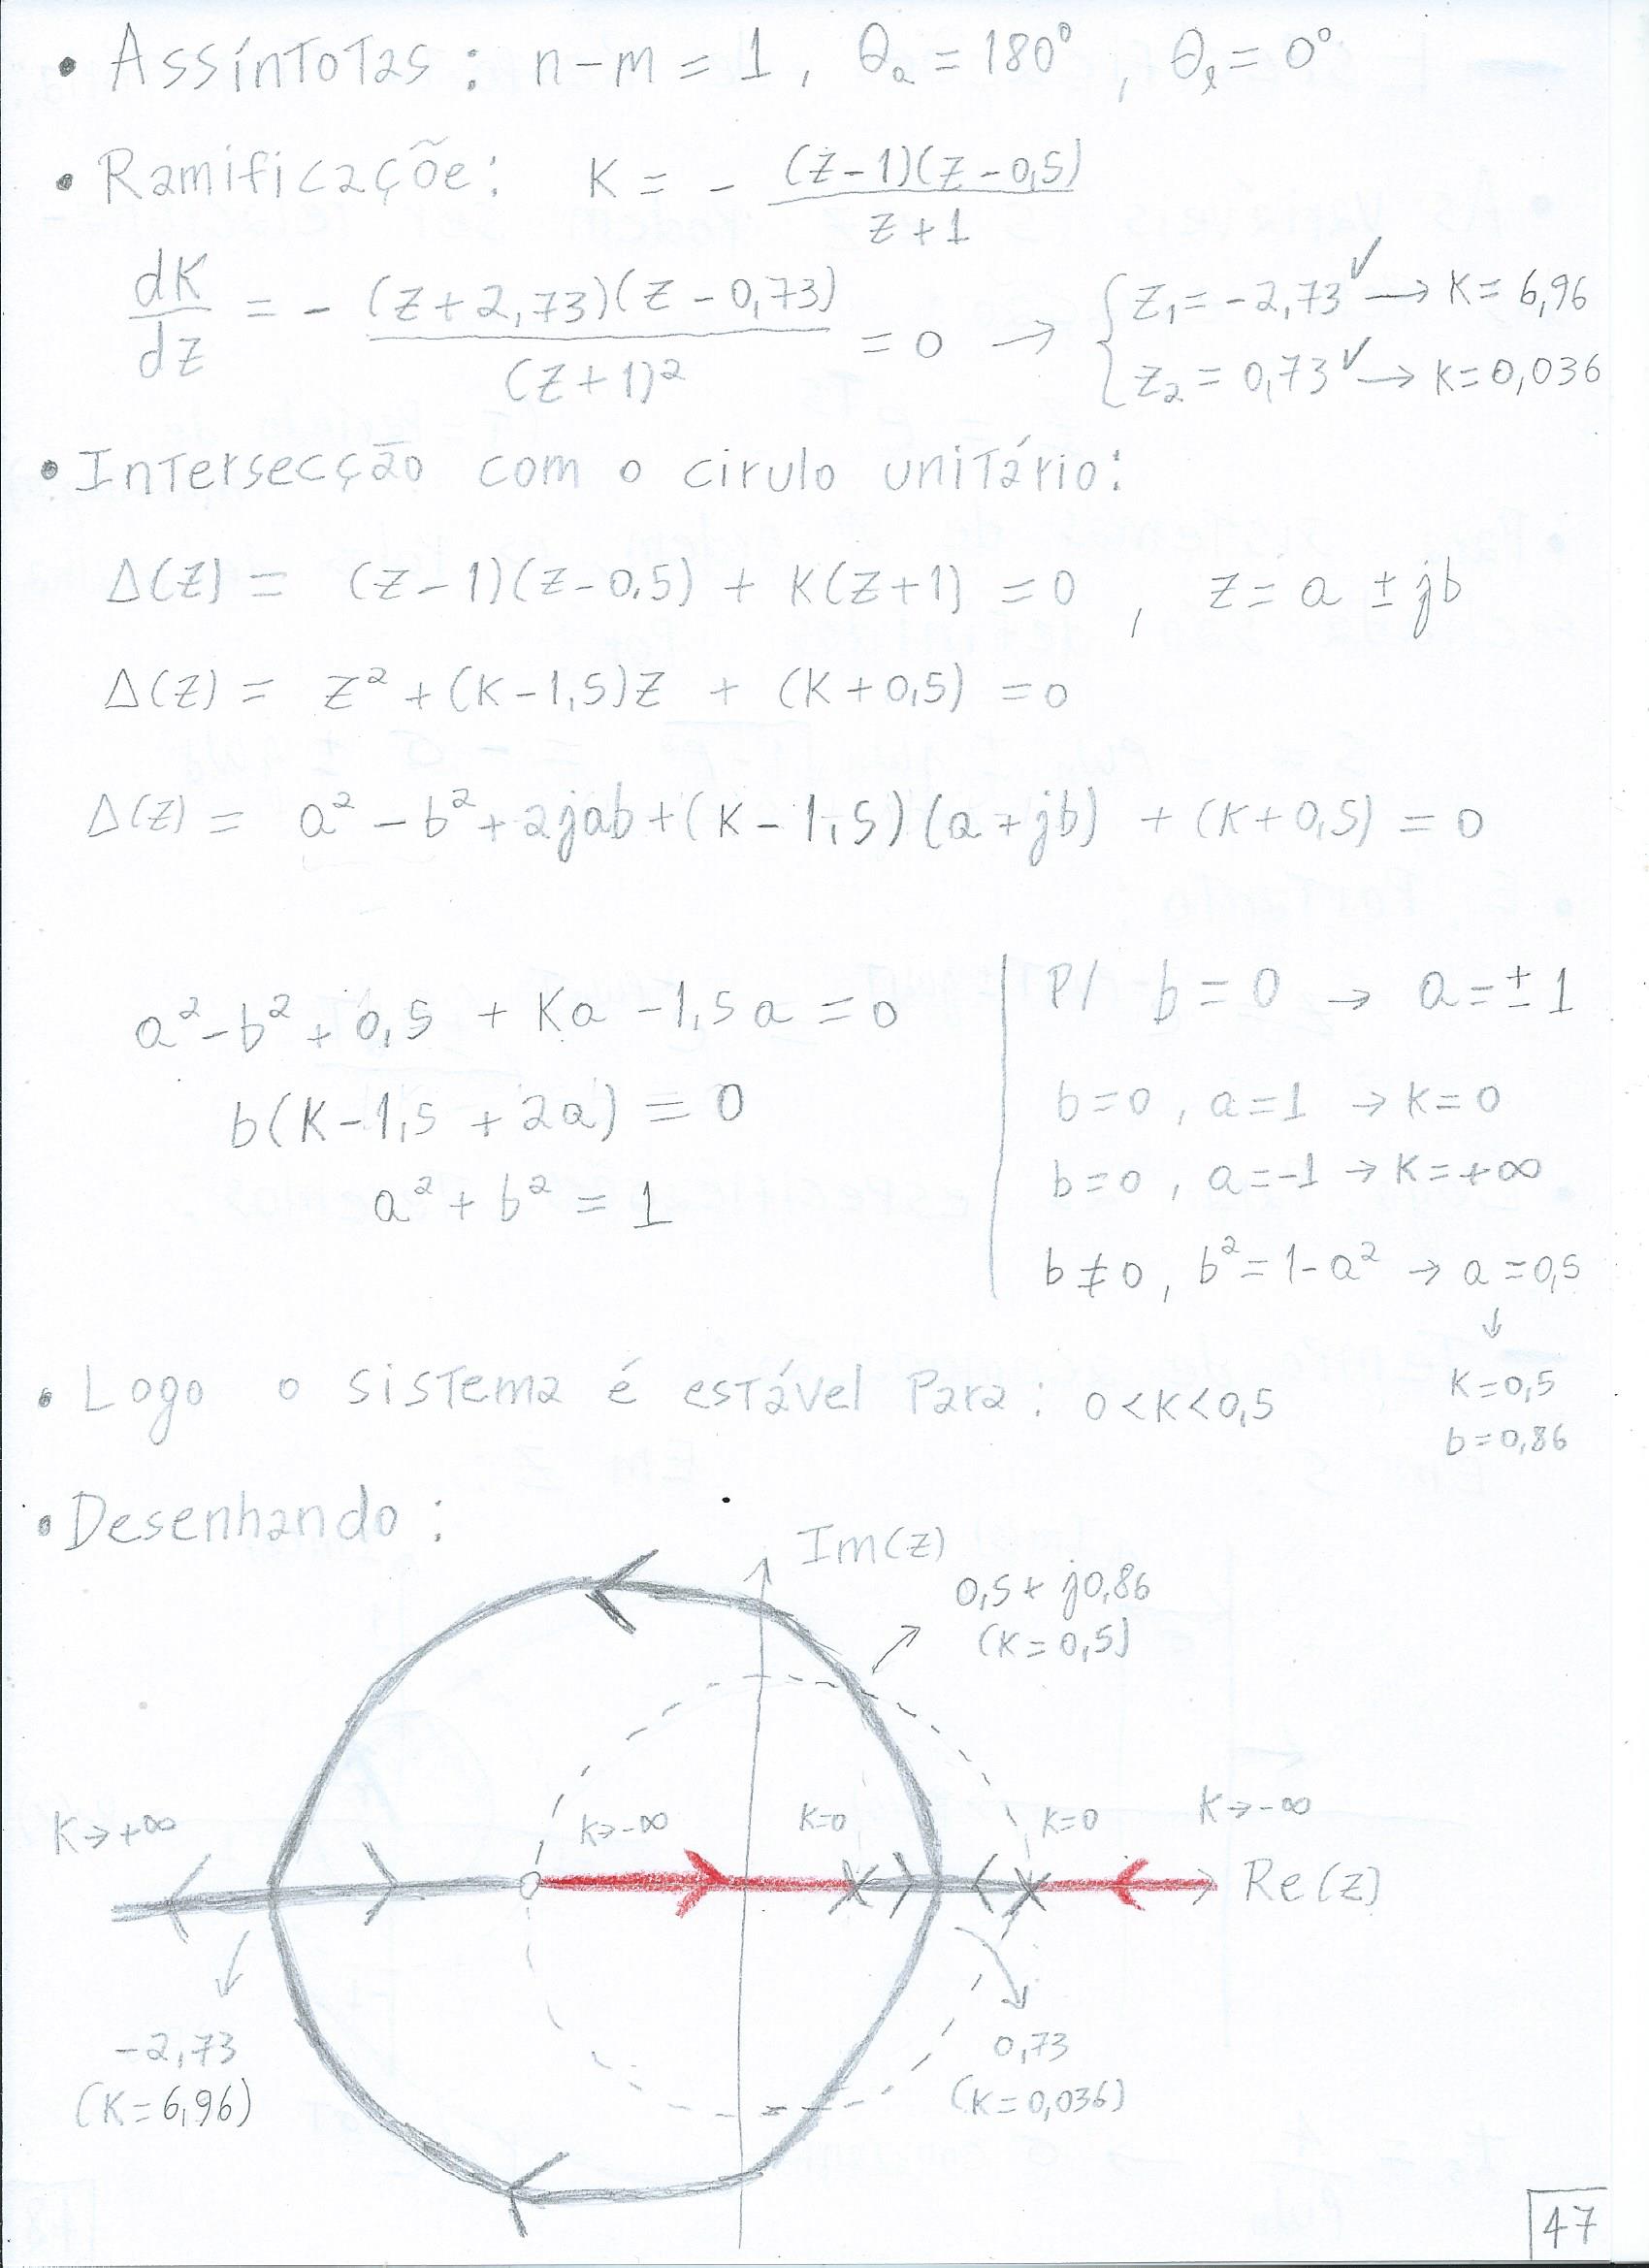 • Assíntotas: n-m = 1, θa = 180°, θℓ = 0°
• Ramificaçõe: K = - (z-1)(z-0,5) / z+1
dK/dz = - (z+2,73)(z-0,73) / (z+1)² = 0 → { z₁ = -2,73 ✓ → K = 6,96
z₂ = 0,73 ✓ → K = 0,036
• Intersecção com o cirulo unitário:
Δ(z) = (z-1)(z-0,5) + K(z+1) = 0 , z = a ± jb
Δ(z) = z² + (K-1,5)z + (K+0,5) = 0
Δ(z) = a² - b² + 2jab + (K-1,5)(a+jb) + (K+0,5) = 0
a² - b² + 0,5 + Ka - 1,5a = 0
b(K-1,5 + 2a) = 0
a² + b² = 1
P/ b = 0 → a = ± 1
b=0, a=1 → K=0
b=0, a=-1 → K=+∞
b≠0, b²=1-a² → a=0,5
↓
K=0,5
b=0,86
• Logo o sistema é estável Para: 0<K<0,5
• Desenhando:
Im(z)
0,5+j0,86
(K=0,5)
K→+∞
K→-∞
K=0
K=0
K→-∞
Re(z)
-2,73
(K=6,96)
0,73
(K=0,036)
47